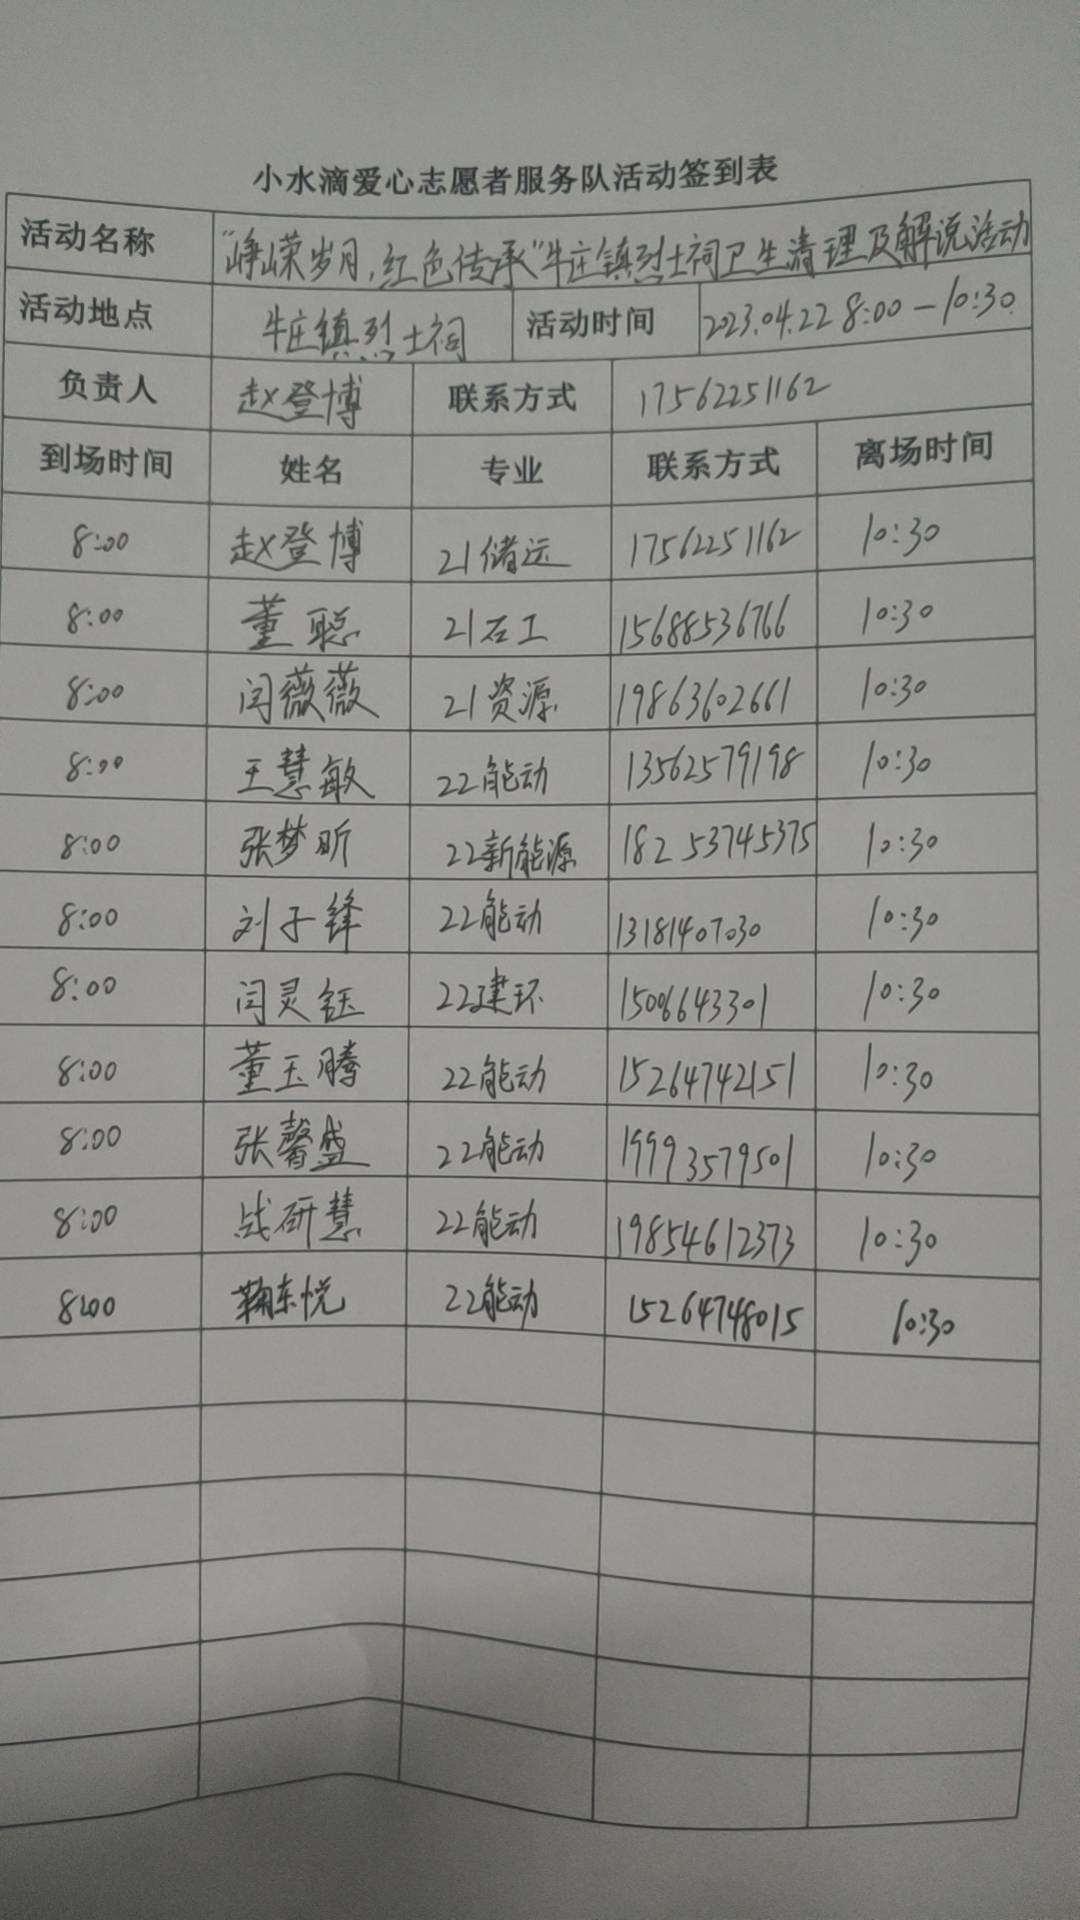 小水滴爱心志愿者服务队活动签到表
活动名称 “峥嵘岁月，红色传承”牛庄镇烈士祠卫生清理及解说活动
活动地点 牛庄镇烈士祠 活动时间 2023.04.22 8:00-10:30
负责人 赵登博 联系方式 17562251162
到场时间 姓名 专业 联系方式 离场时间
8:00 赵登博 21储运 17562251162 10:30
8:00 董聪 21石工 15688536766 10:30
8:00 闫薇薇 21资源 19863602661 10:30
8:00 王慧敏 22能动 13562579198 10:30
8:00 张梦昕 22新能源 18253745375 10:30
8:00 刘子锋 22能动 13181407030 10:30
8:00 闫灵钰 22建环 15006643301 10:30
8:00 董玉腾 22能动 15264742151 10:30
8:00 张馨盛 22能动 19993579501 10:30
8:00 战研慧 22能动 19854612373 10:30
8:00 鞠东悦 22能动 15264748015 10:30